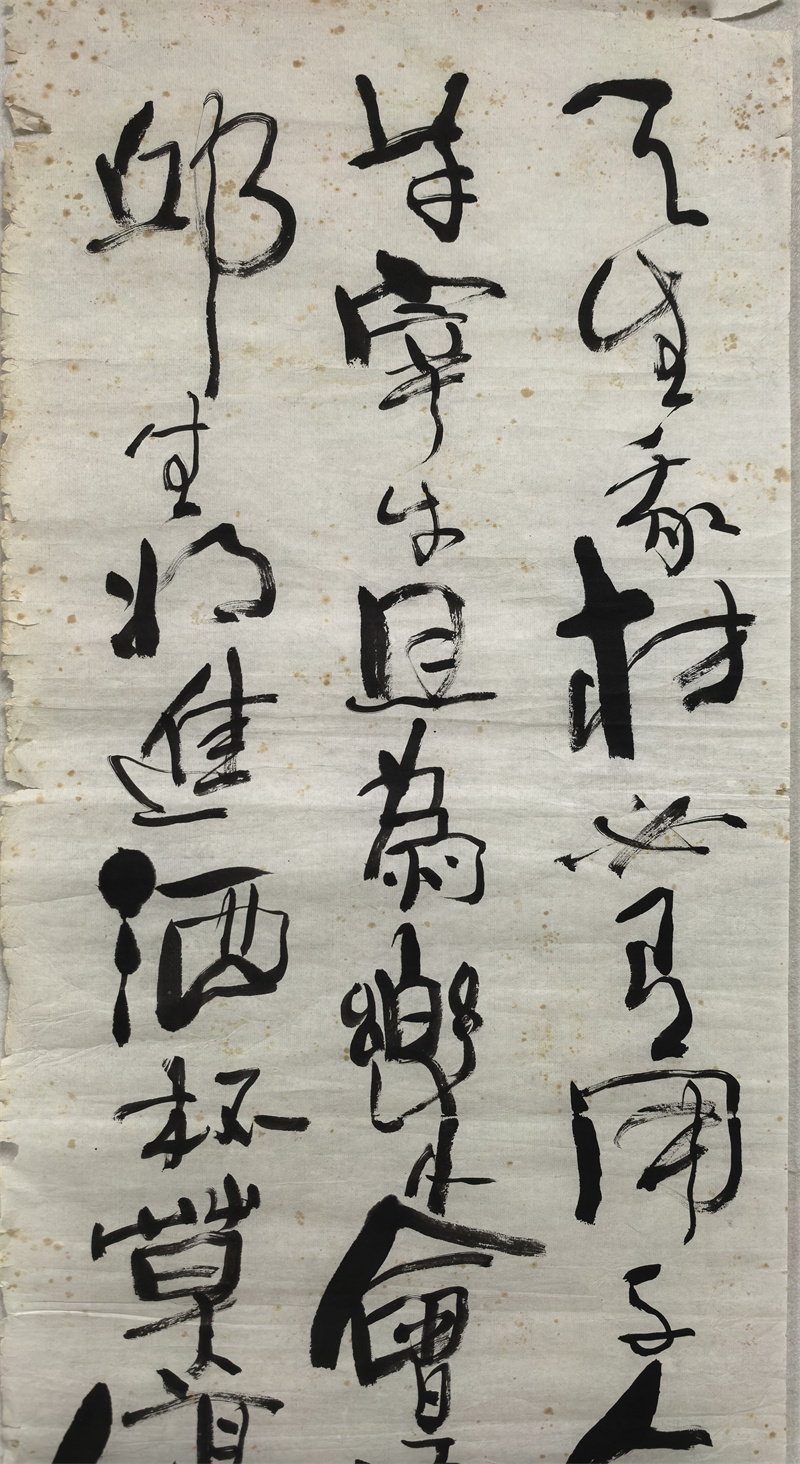 天生我材必有用千
羊宰牛且為樂會
邱生將進酒杯莫停